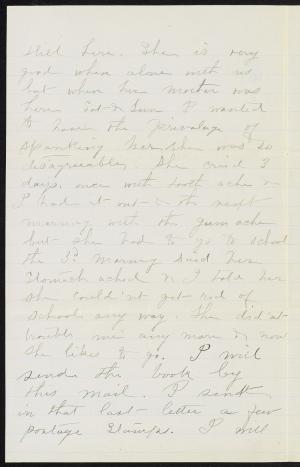 still here. She is very
good when alone with us
but when her mother was
here Sat & Sun I wanted
to have the privalage of
spanking her, she was so
disagreeable. She cried 3
days. once with tooth ache &
I had it out & the next
morning with the gum ache
but she had to go to school
the 3d morning said her
stomach ached & I told her
she could'nt get rid of
school any way. She did'nt
trouble me any more & now
she likes to go. I will
send the book by
this mail. I sent
in that last letter a few
postage stamps. I will